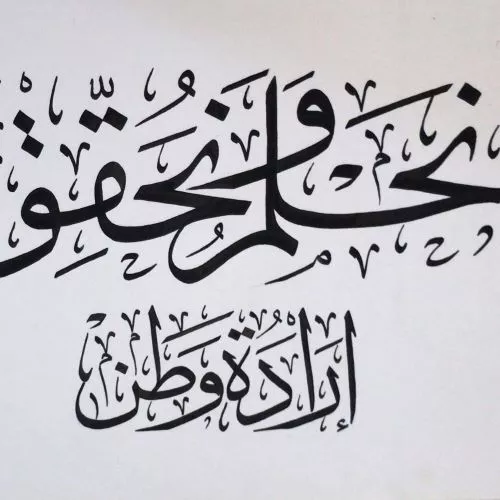 نحلم ونحقّق
إرادة وطن